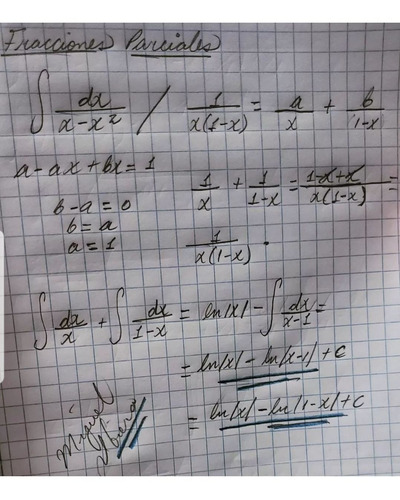 Fracciones Parciales
∫ dx/(x-x²) / 1/(x(1-x)) = a/x + b/(1-x)
a-ax+bx=1
1/x + 1/(1-x) = (1-x+x)/(x(1-x)) =
b-a=0
b=a
a=1
1/(x(1-x)) .
∫ dx/x + ∫ dx/(1-x) = ln|x| - ∫ dx/(x-1) =
= ln|x| - ln|x-1| + c
= ln|x| - ln|1-x| + c
Miguel